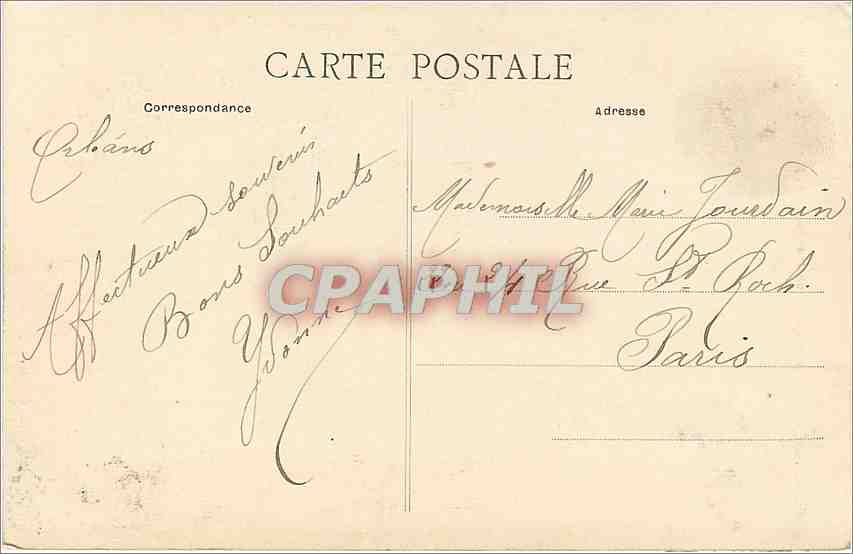 CARTE POSTALE
Correspondance
Adresse
Orléans
Affectueux souvenir
Bons Souhaits
Yvonne
Mademoiselle Marie Jourdain
24 Rue St. Roch.
Paris
CPAPHIL